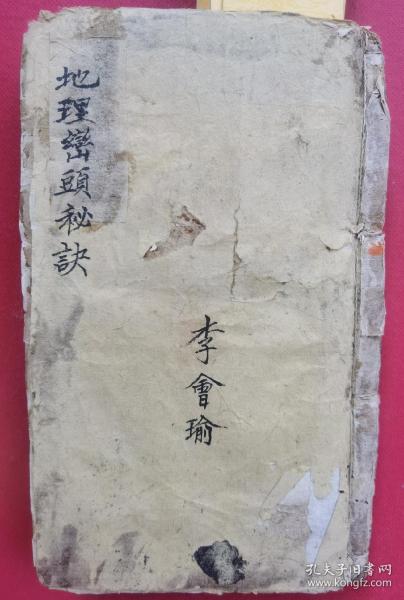 地理巒頭秘訣
李會瑜
孔夫子旧书网
www.kongfz.com